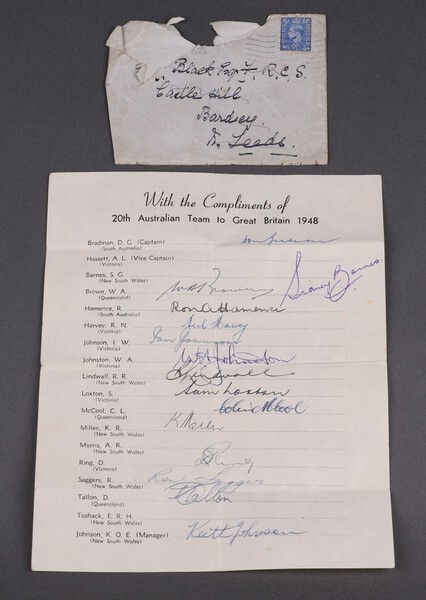 Black Esq. F.R.C.S.
Castle Hill
Bardsey
Nr. Leeds.
With the Compliments of
20th Australian Team to Great Britain 1948
Bradman, D. G. (Captain) Don Bradman
(South Australia)
Hassett, A. L. (Vice Captain)
(Victoria)
Barnes, S. G. Sidney Barnes
(New South Wales)
Brown, W. A. W A Brown
(Queensland)
Hamence, R. Ron A Hamence
(South Australia)
Harvey, R. N. Neil Harvey
(Victoria)
Johnson, I. W. Ian Johnson
(Victoria)
Johnston, W. A. W A Johnston
(Victoria)
Lindwall, R. R. R Lindwall
(New South Wales)
Loxton, S. Sam Loxton
(Victoria)
McCool, C. L. Colin McCool
(Queensland)
Miller, K. R. K Miller
(New South Wales)
Morris, A. R.
(New South Wales)
Ring, D. D Ring
(Victoria)
Saggers, R. Ron Saggers
(New South Wales)
Tallon, D. D Tallon
(Queensland)
Toshack, E. R. H.
(New South Wales)
Johnson, K. O. E. (Manager) Keith Johnson
(New South Wales)